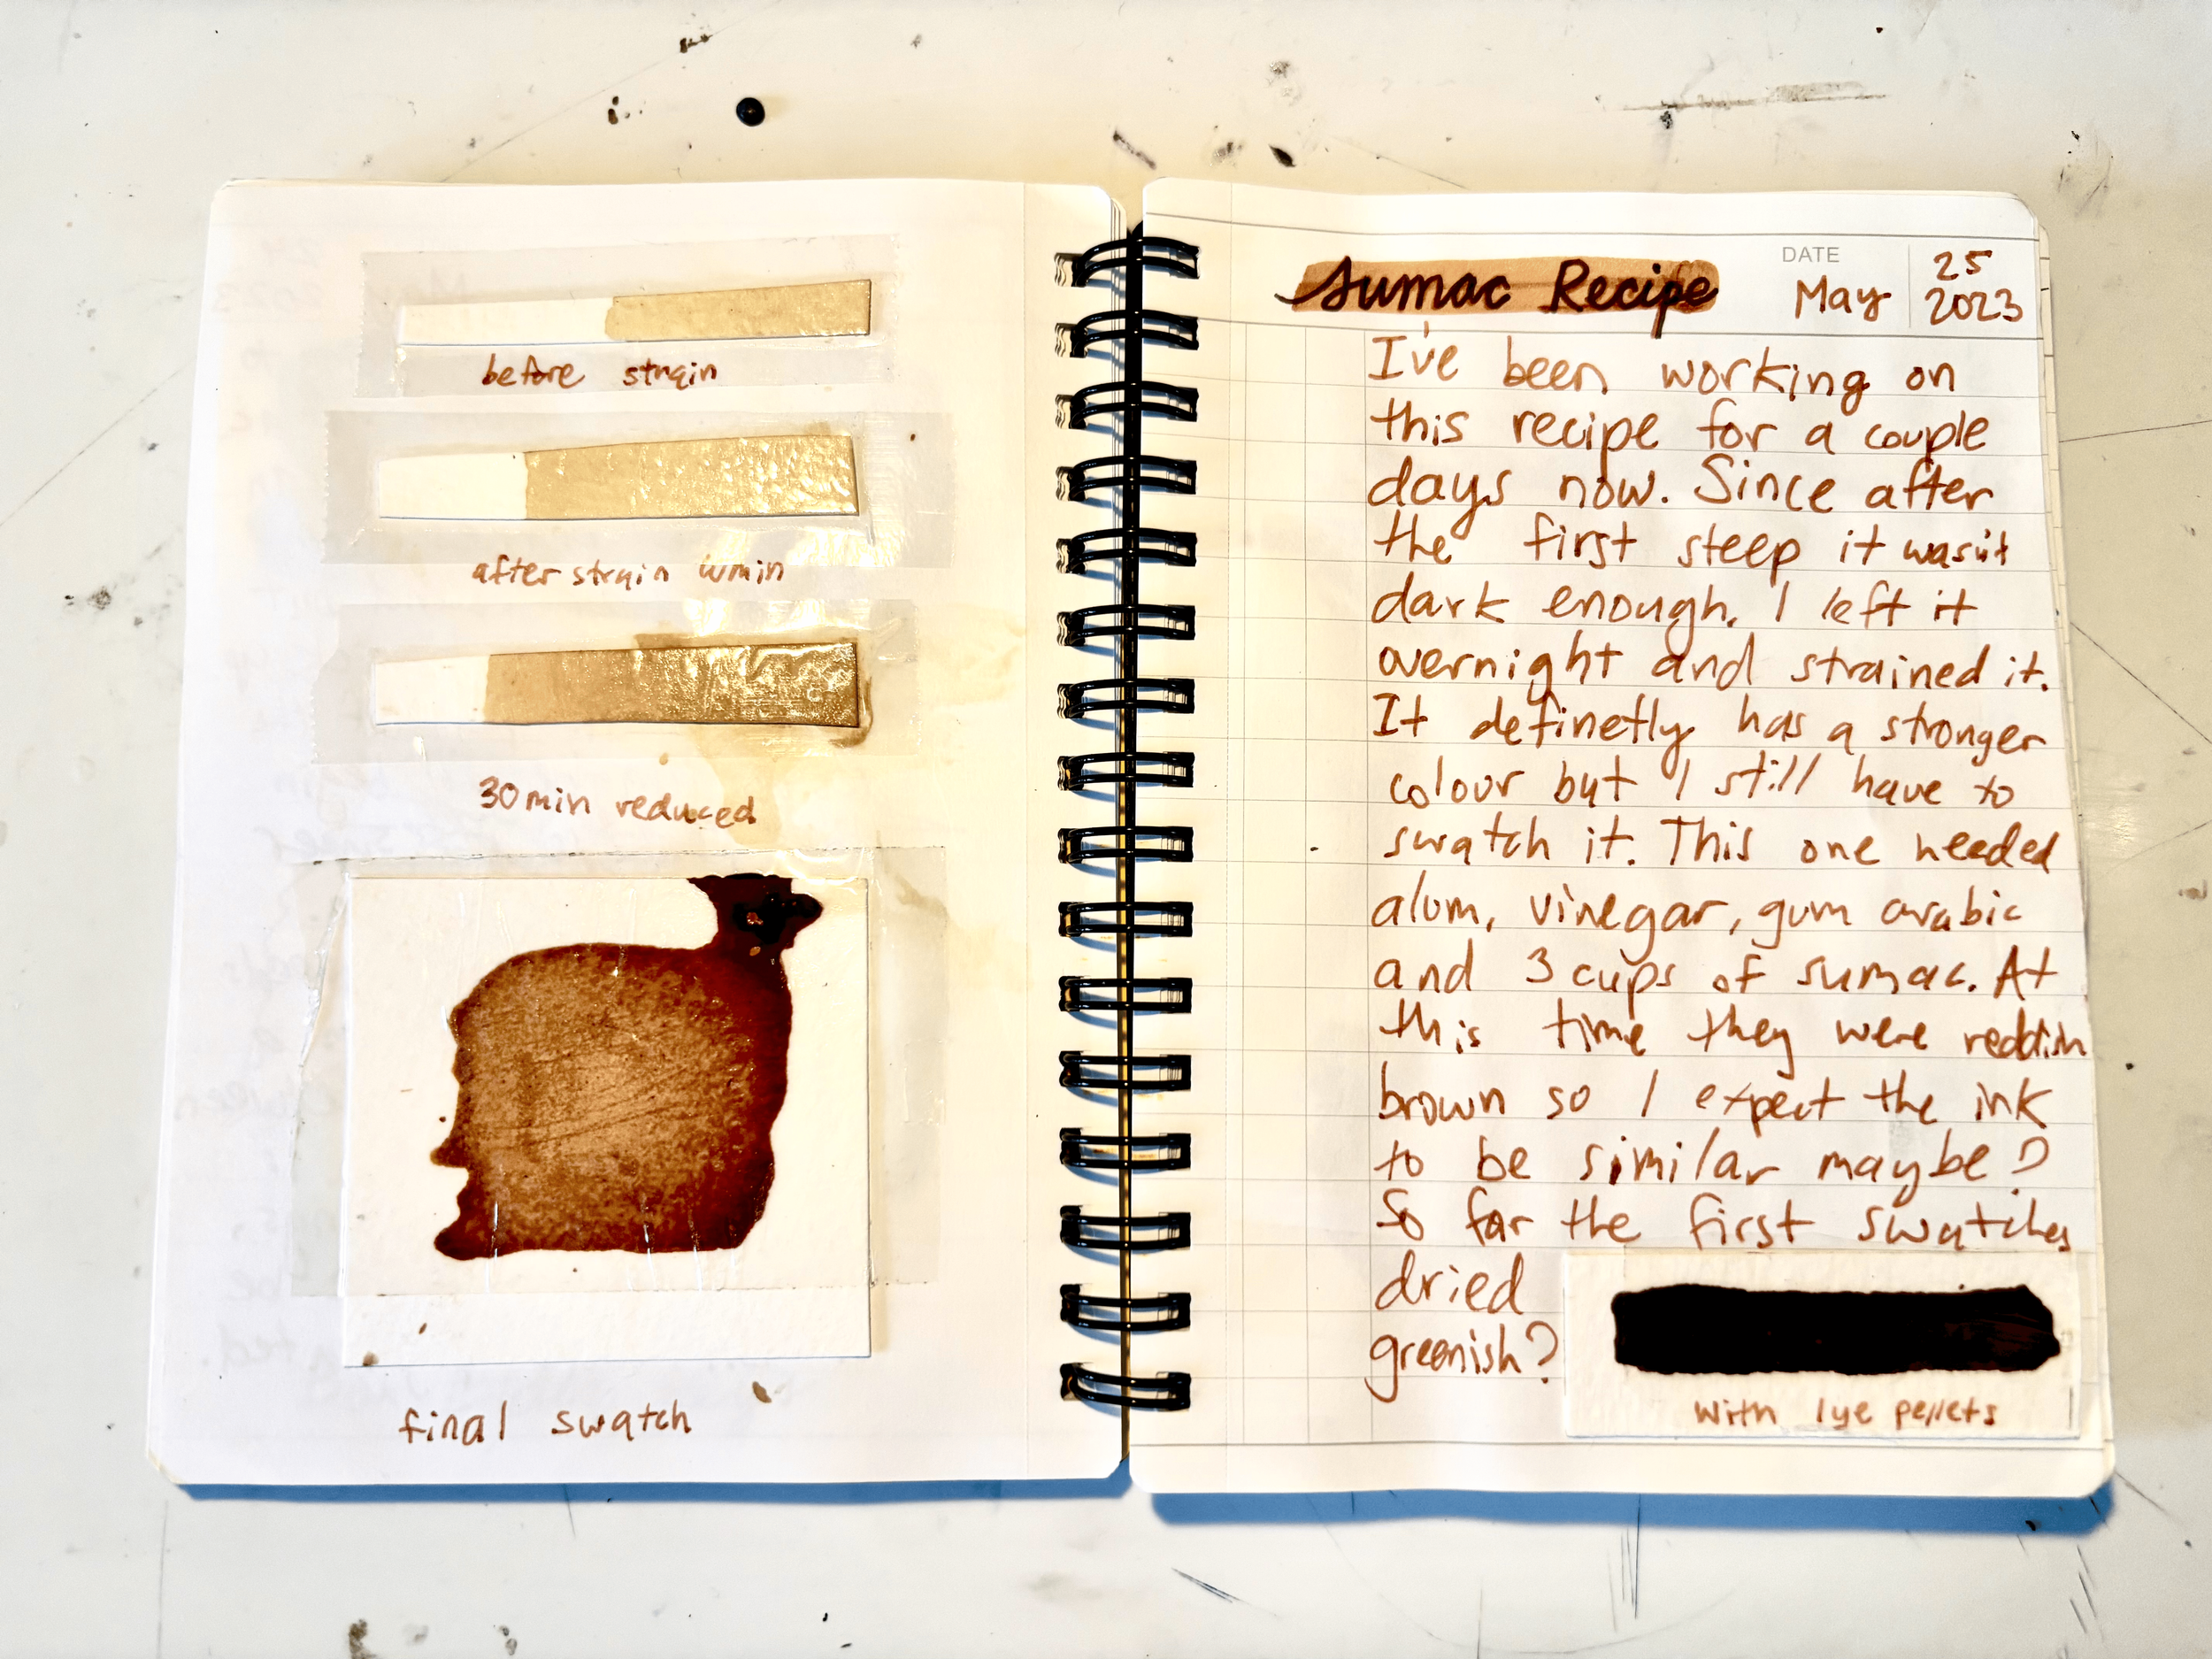 before strain
after strain
30min reduced
final swatch
Sumac Recipe
DATE
May
25
2023
I've been working on
this recipe for a couple
days now. Since after
the first steep it wasn't
dark enough. I left it
overnight and strained it.
It definetly has a stronger
colour but I still have to
swatch it. This one needed
alum, vinegar, gum arabic
and 3 cups of sumac. At
this time they were reddish
brown so I expect the ink
to be similar maybe?
So far the first swatches
dried
greenish?
with lye pellets